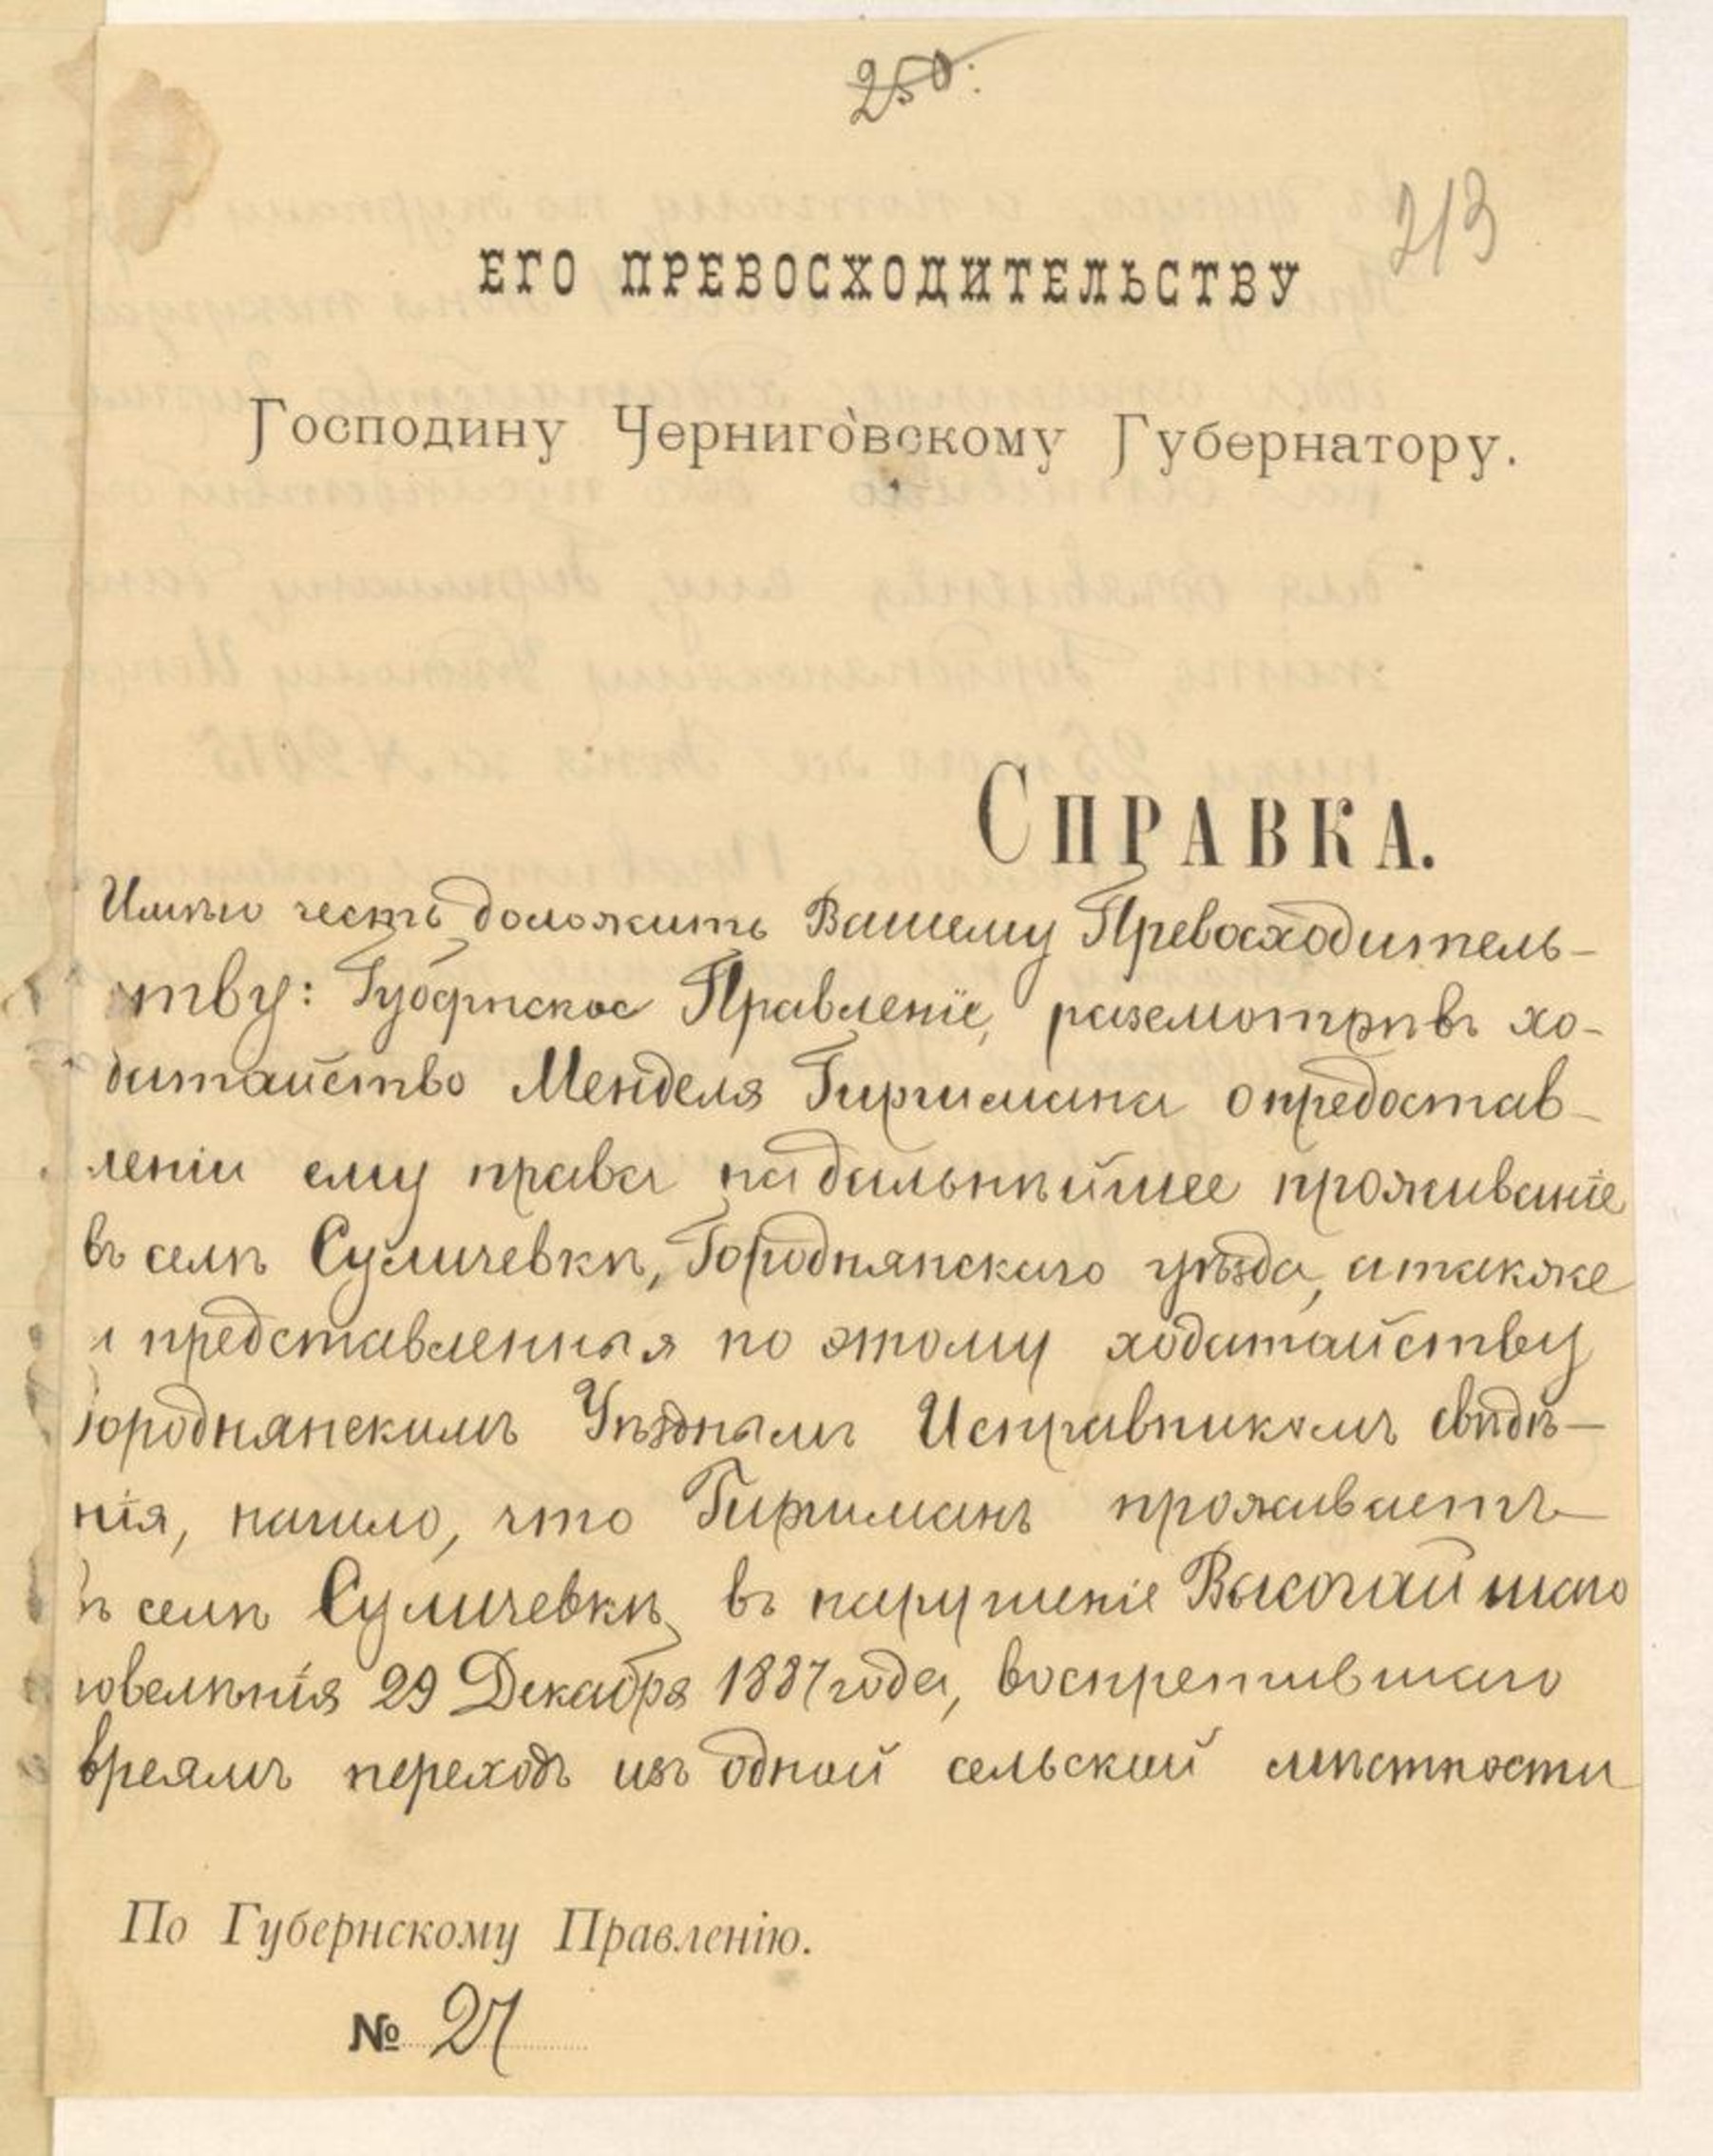 250.
213
ЕГО ПРЕВОСХОДИТЕЛЬСТВУ
Господину Черниговскому Губернатору.
СПРАВКА.
Имѣю честь доложить Вашему Превосходитель-
ству: Губернское Правленіе, разсмотрѣвъ хо-
датайство Менделя Гиршмана о предостав-
леніи ему права на дальнѣйшее проживаніе
въ селѣ Суличевкѣ, Городнянскаго уѣзда, а также
и представленныя по этому ходатайству
Городнянскимъ Уѣзднымъ Исправникомъ свѣдѣ-
нія, нашло, что Гиршманъ проживаетъ
въ селѣ Суличевкѣ въ нарушеніе Высочайшаго
повелѣнія 29 Декабря 1887 года, воспретившаго
евреямъ переходъ изъ одной сельской мѣстности
По Губернскому Правленію.
№ 27